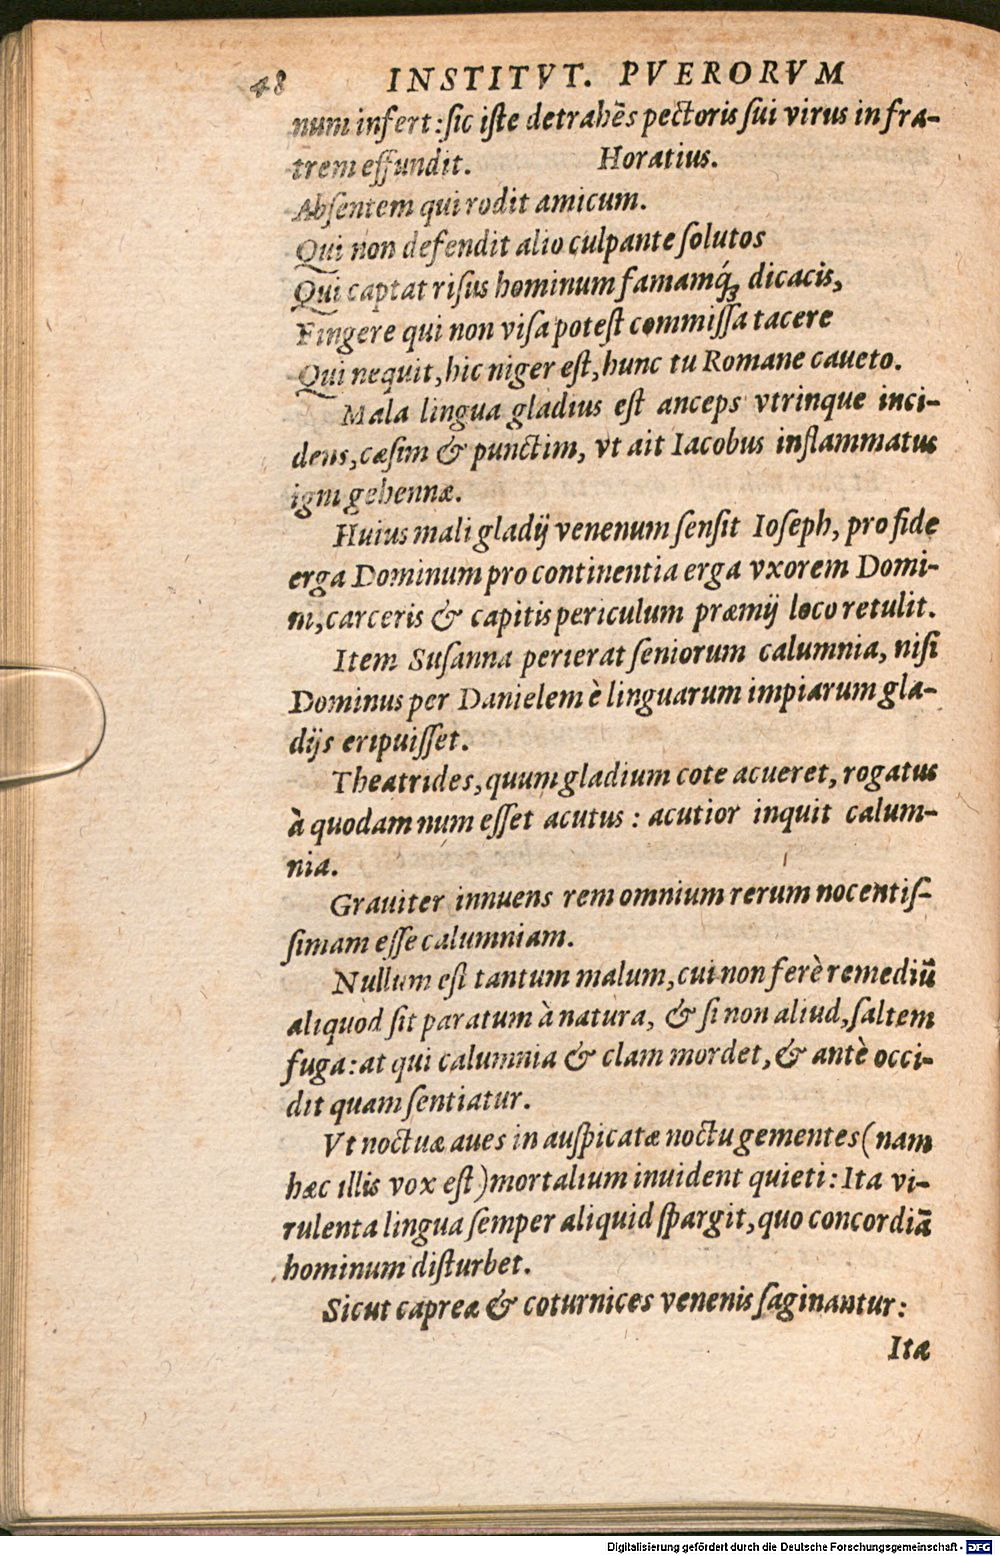 48 INSTITVT. PVERORVM
num infert: sic iste detrahēs pectoris sui virus in fra-
trem effundit. Horatius.
Absentem qui rodit amicum.
Qui non defendit alio culpante solutos
Qui captat risus hominum famamq́ꝫ dicacis,
Fingere qui non visa potest commissa tacere
Qui nequit, hic niger est, hunc tu Romane caueto.
Mala lingua gladius est anceps vtrinque inci-
dens, cæsim & punctim, vt ait Iacobus inflammatus
igni gehennæ.
Huius mali gladij venenum sensit Ioseph, pro fide
erga Dominum pro continentia erga vxorem Domi-
ni, carceris & capitis periculum præmij loco retulit.
Item Susanna perierat seniorum calumnia, nisi
Dominus per Danielem è linguarum impiarum gla-
dijs eripuisset.
Theatrides, quum gladium cote acueret, rogatus
à quodam num esset acutus: acutior inquit calum-
nia.
Grauiter innuens rem omnium rerum nocentis-
simam esse calumniam.
Nullum est tantum malum, cui non ferè remediū
aliquod sit paratum à natura, & si non aliud, saltem
fuga: at qui calumnia & clam mordet, & antè occi-
dit quam sentiatur.
Vt noctuæ aues in auspicatæ noctu gementes (nam
hæc illis vox est) mortalium inuident quieti: Ita vi-
rulenta lingua semper aliquid spargit, quo concordiā
hominum disturbet.
Sicut capreæ & coturnices venenis saginantur:
Ita
Digitalisierung gefördert durch die Deutsche Forschungsgemeinschaft - DFG